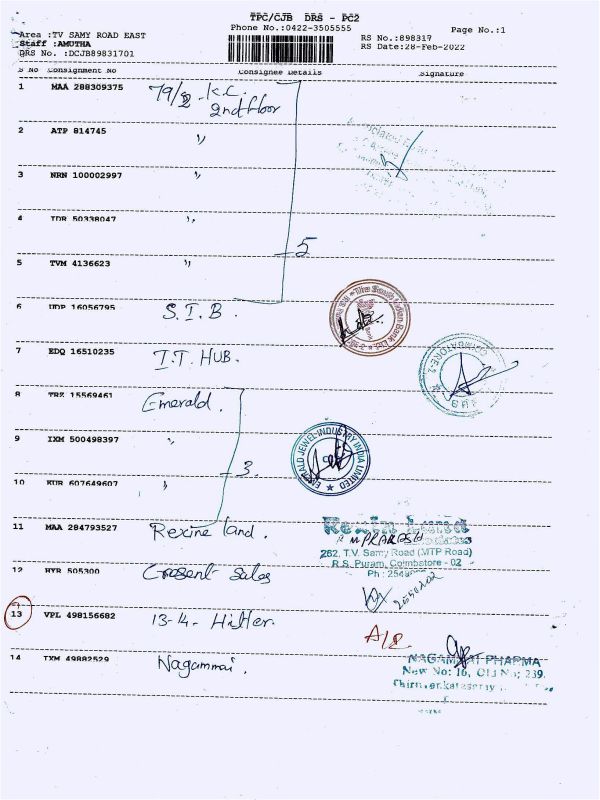 TPC/CJB DRS - PC2
Phone No.:0422-3505555
Page No.:1
Area :TV SAMY ROAD EAST
Staff :AMUTHA
DRS No. :DCJB89831701
RS No.:898317
RS Date:28-Feb-2022
S No Consignment No Consignee Details Signature
1 MAA 288309375 79/2 K.C.
2nd floor
2 ATP 814745 "
3 NRN 100002997 "
4 IDR 50338047 "
5
5 TVM 4136623 "
6 UDP 16056795 S.I.B.
The South Indian Bank Ltd.
7 EDQ 16510235 I.T. HUB.
COIMBATORE-2
8 TRZ 15569461 Emerald.
9 IXM 500498397 "
EMERALD JEWEL INDUSTRY INDIA LIMITED
3.
10 KUR 607649607 "
11 MAA 284793527 Rexine land.
282, T.V. Samy Road (MTP Road)
R.S. Puram, Coimbatore - 02
Ph :
12 HYR 505300 Cresent Sales
13 VPL 498156682 13-4- Hitler.
14 IXM 49882529 Nagammai.
NAGAMMAI PHARMA
New No: 16, Old No; 239.